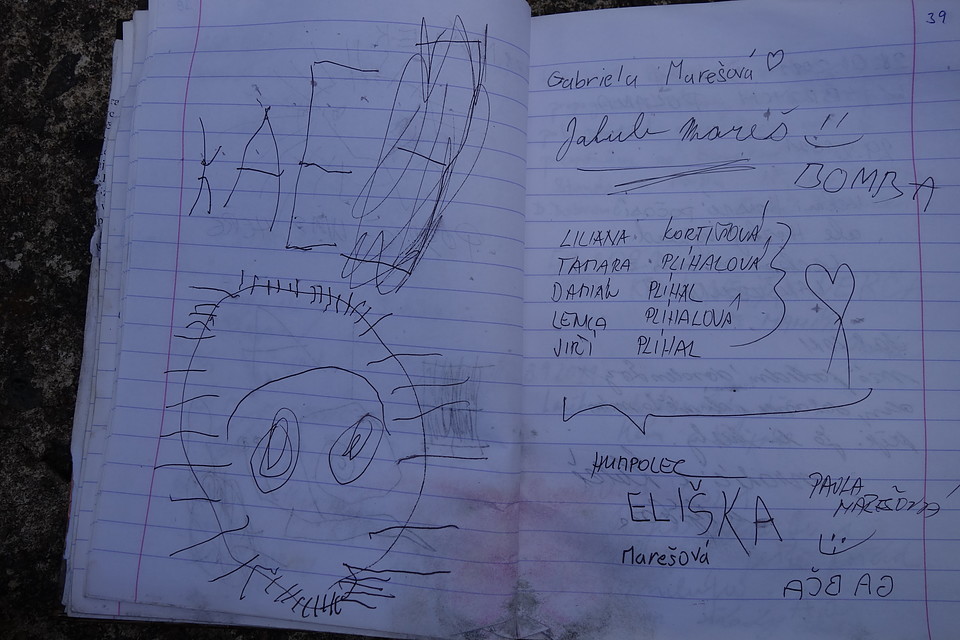 KAE
39
Gabriela Marešová
Jakub Mareš
BOMBA
LILIANA KORTIŠOVÁ
TAMARA PLÍHALOVÁ
DAMIÁN PLÍHAL
LENKA PLÍHALOVÁ
JIŘÍ PLÍHAL
HUMPOLEC
ELIŠKA
Marešová
PAVLA
MAREŠOVÁ